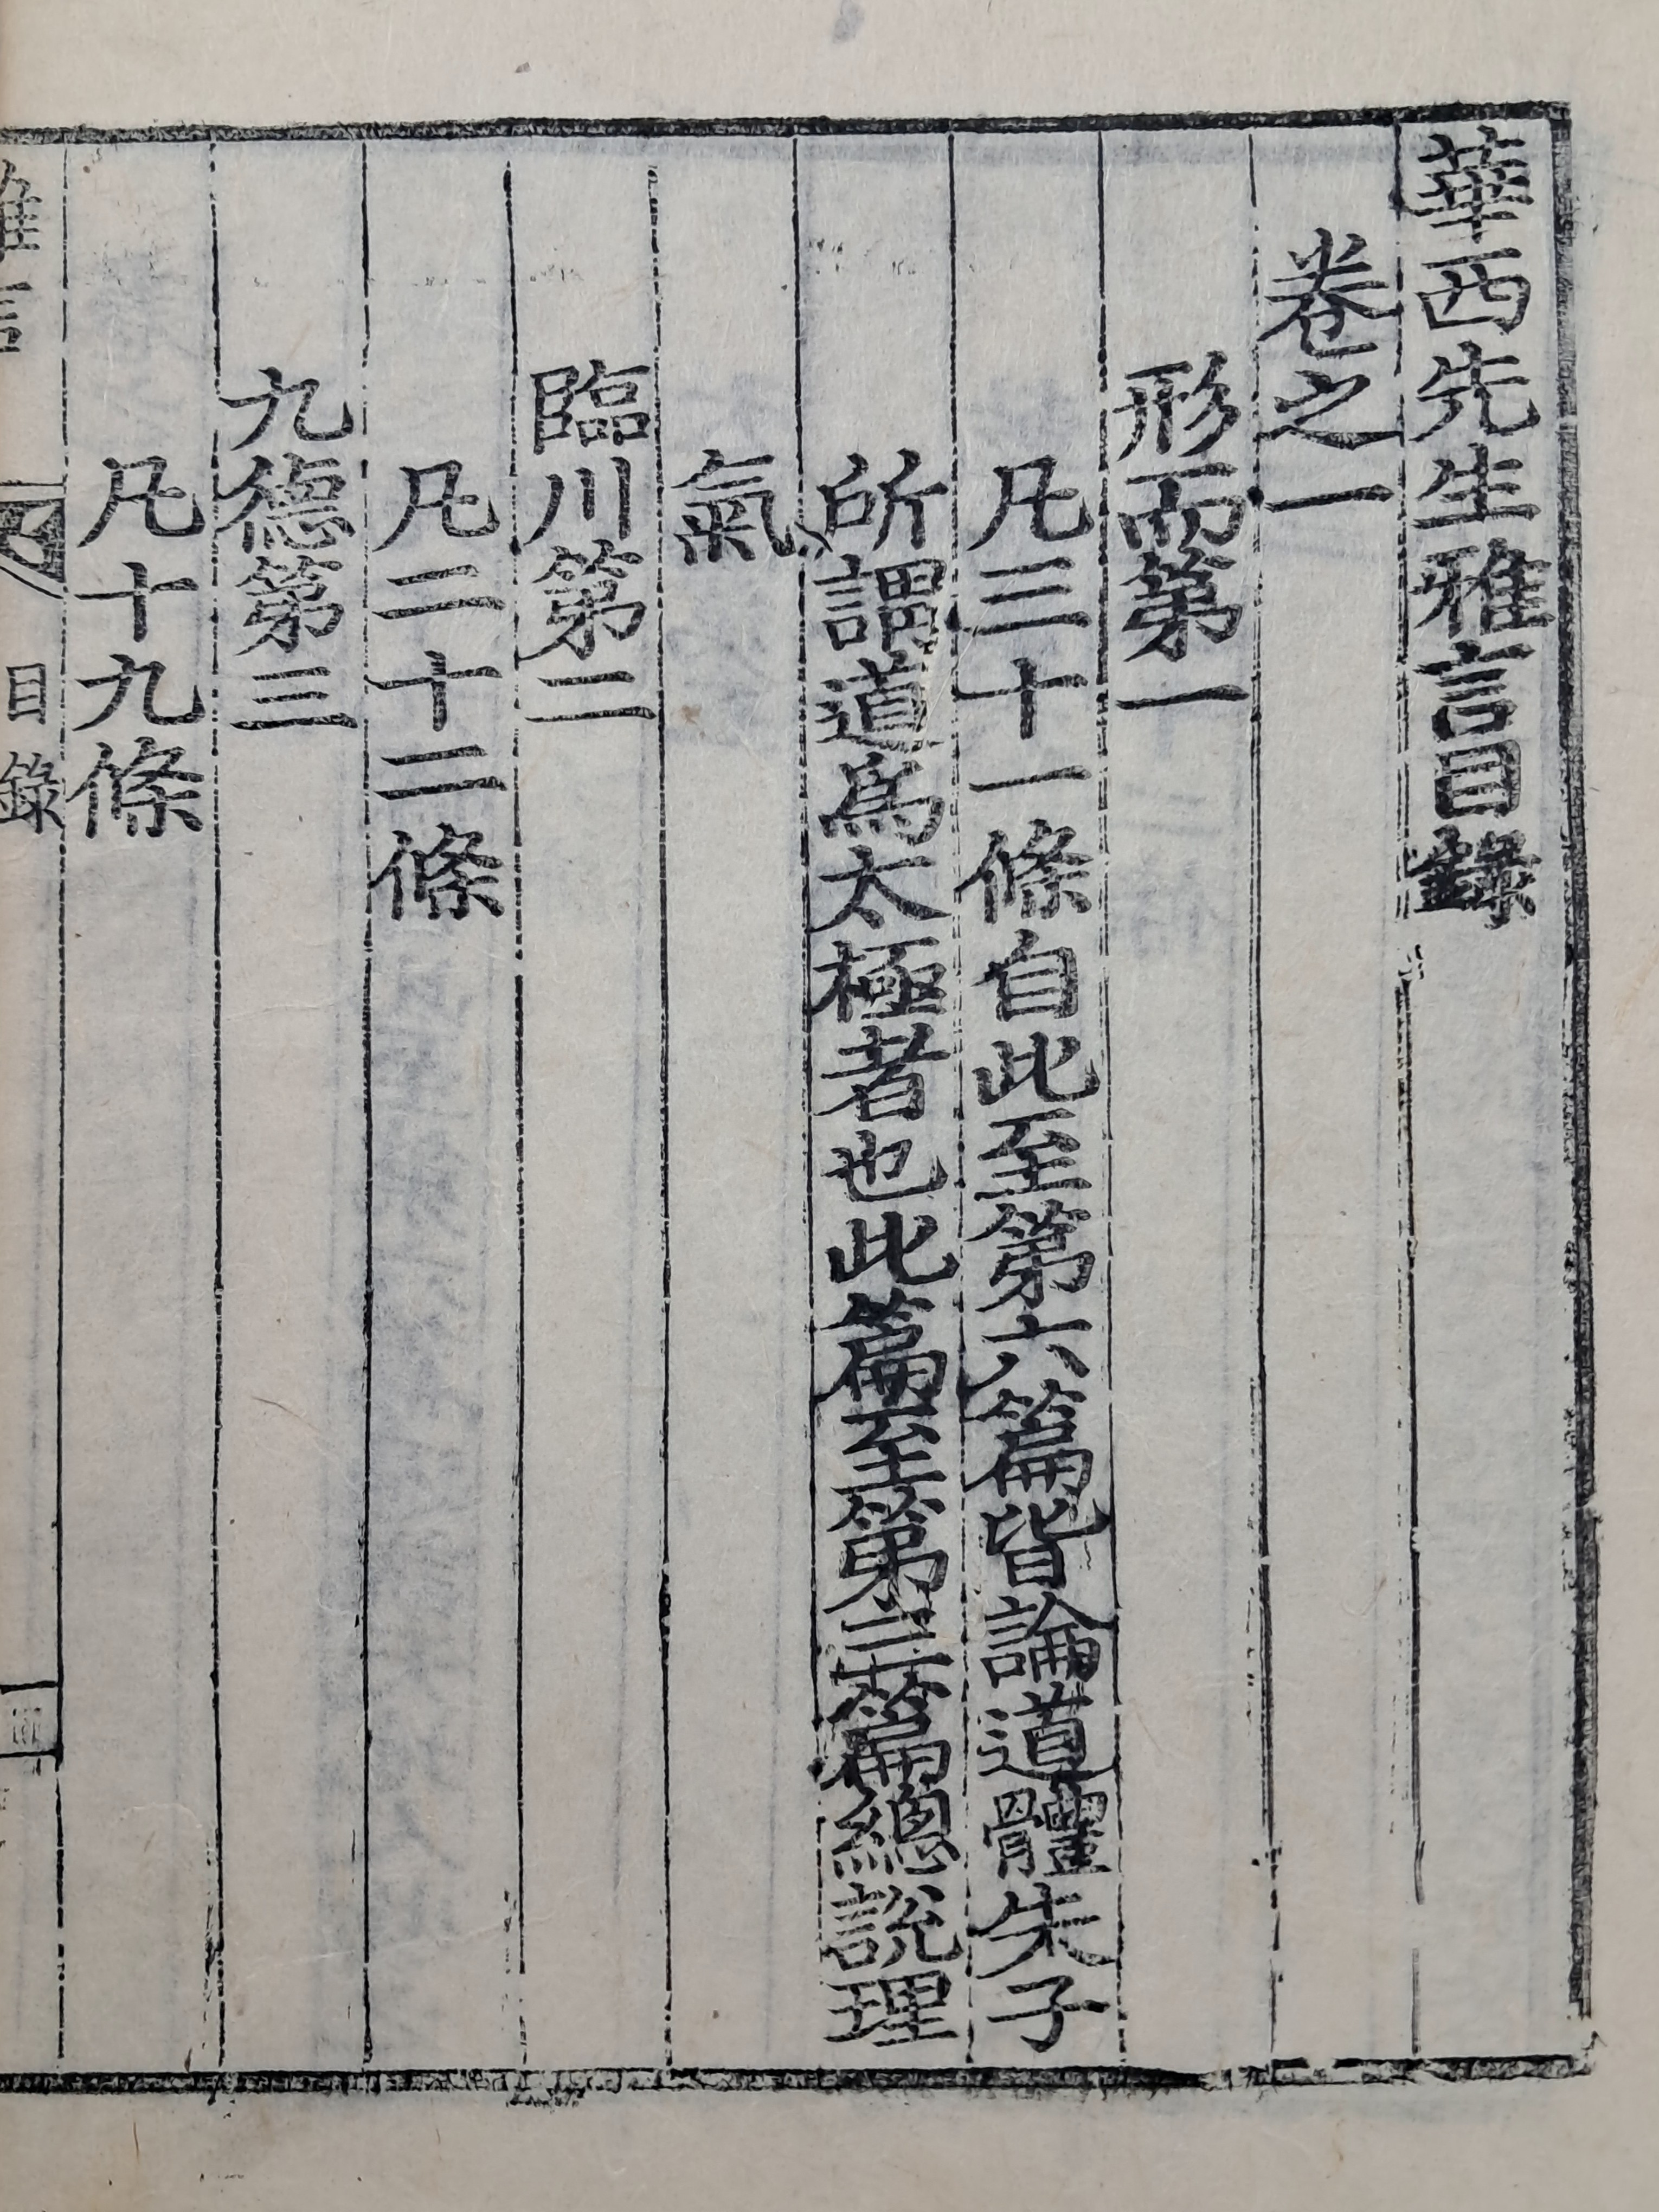 華西先生雅言目錄
卷之一
形而第一
凡三十一條自此至第六篇皆論道體朱子
所謂道爲太極者也此篇至第三篇總說理
氣
臨川第二
凡二十二條
九德第三
凡十九條
雅言
目錄